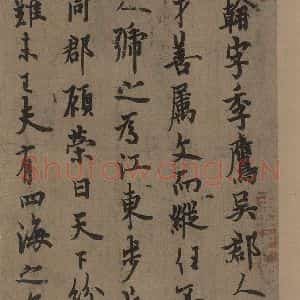 翰字季鷹吳郡人
才善屬文而縱任
人號之為江東步
同郡顧榮曰天下紛
難未已夫有四海之
Shufawang.CN